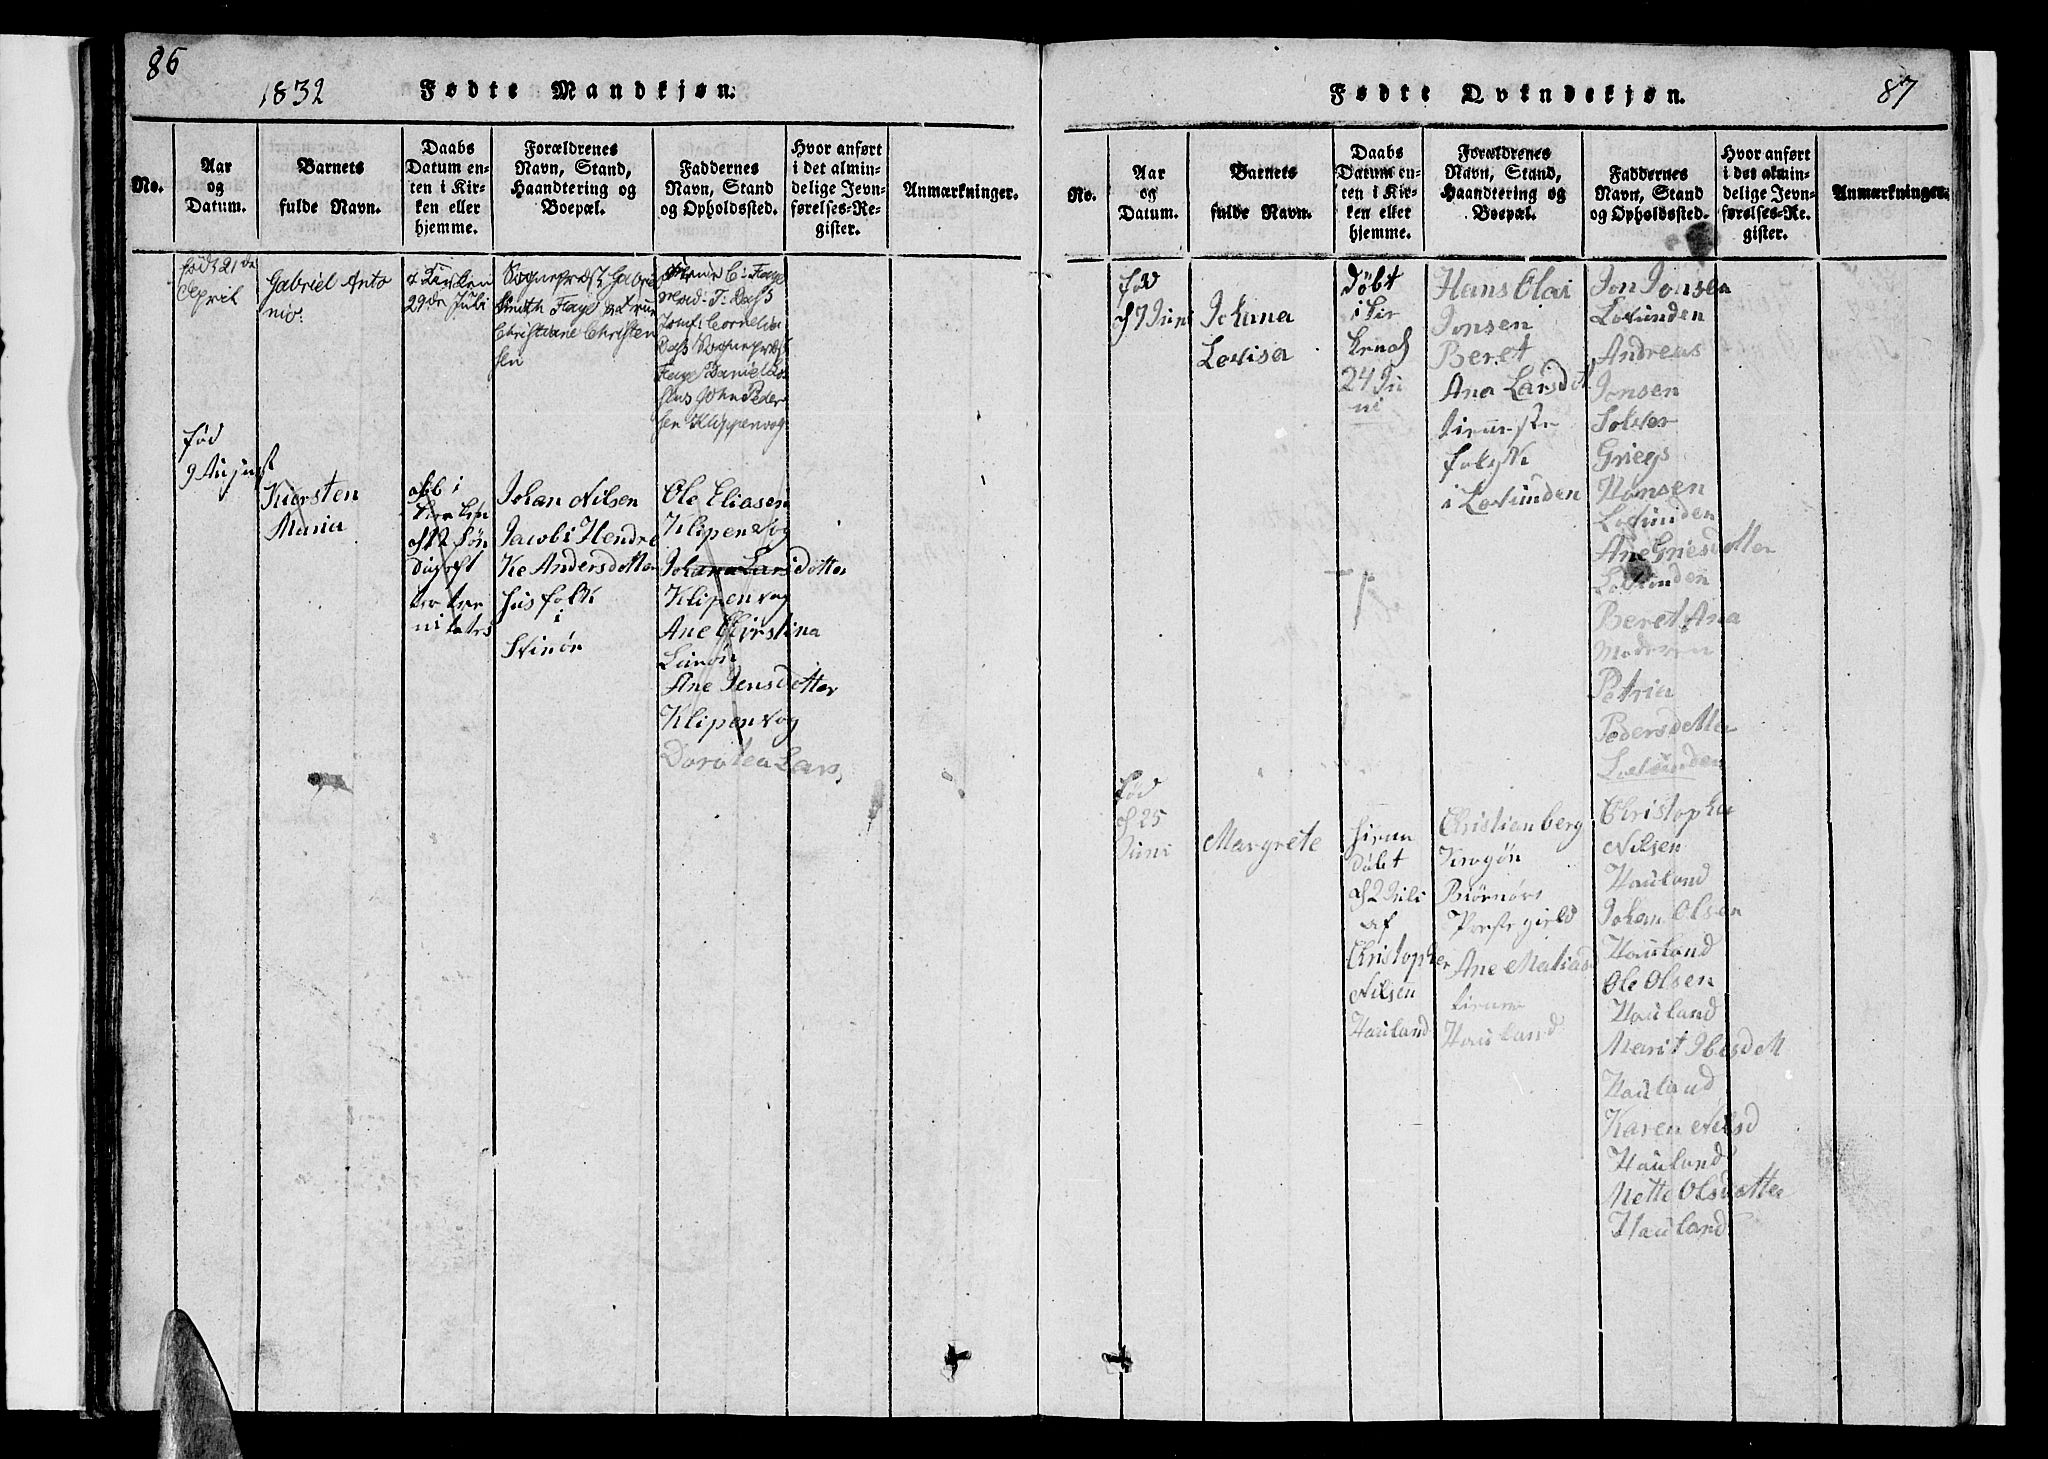 86
1832
Fødte Mandkjøn.
No.
Aar
og
Datum.
Barnets
fulde Navn.
Daabs
Datum en-
ten i Kir-
ken eller
hjemme.
Forældrenes
Navn, Stand,
Haandtering og
Boepæl.
Faddernes
Navn, Stand
og Opholdssted.
Hvor anført
i det almin-
delige Jevn-
førelses-Re-
gister.
Anmærkninger.
født 21de
April
Gabriel Anto
nio.
i Kirken
29de Juli
Sognepræst Gabriel
Smith Faye
Christiane Christen
sen
C: Faye
T: Dass
Jomf: Cornelia
Dass Sognepræst
Faye Daniel
John Peder
sen Klippenvog
fød
9 August
Kiersten
Maria
i
Søn
Dag
Johan Nilsen
Jacobi Hendri
Ke Andersdotter
husfolk
i
Ole Eliasen
Klipenvog
Johana Larsdotter
Klipenvog
Ane Kirstina
Ane Jensdotter
Klipenvog
Dorotea Lars
87
Fødte Qvindekjøn.
No.
Aar
og
Datum.
Barnets
fulde Navn.
Daabs
Datum en-
ten i Kir-
ken eller
hjemme.
Forældrenes
Navn, Stand,
Haandtering og
Boepæl.
Faddernes
Navn, Stand
og Opholdssted.
Hvor anført
i det almin-
delige Jevn-
førelses-Re-
gister.
Anmærkninger.
fød
7 Juni
Johana
Lovisa
Døbt
i Kir
24 Ju
ni
Hans Olai
Jonsen
Beret
Ana Larsdot
tieneste
folk
i Lovunden
Jon Jonsen
Lovunden
Andreas
Jonsen
Griegs
Hansen
Lovunden
Ane Griesdotter
Lovunden
Beret Ana
Moderen
Petria
Pedersdotter
Lovunden
fød
25
Juni
Margrete
hiem
Døbt
2 Juli
af
Christopher
Nilsen
Hauland
Christian berg
Kragøn
Biørnør
Preste gield
Ane Matiasd
Hauland
Christopher
Nilsen
Hauland
Johan Olsen
Hauland
Ole Olsen
Hauland
Marit Ibesdott
Hauland
Karen Nilsd
Hauland
Mette Olsdotter
Hauland